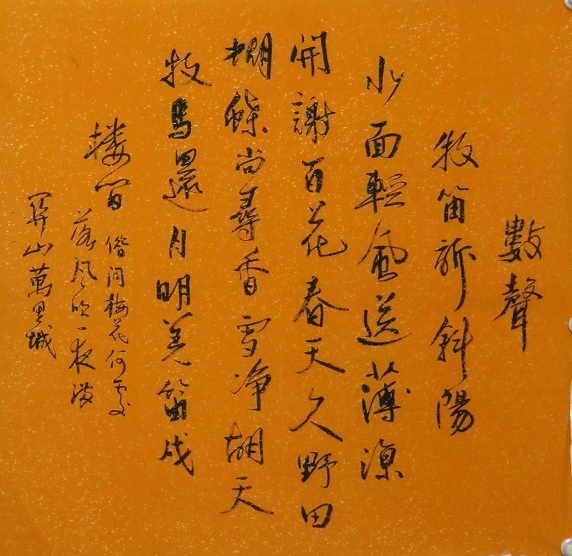 數聲
牧笛訴斜陽
水面輕風送薄涼
開謝百花春天久野田
蝴蝶尚尋香雪净胡天
牧馬還月明羌笛戍
楼間借问梅花何處
落风吹一夜满
関山萬里城